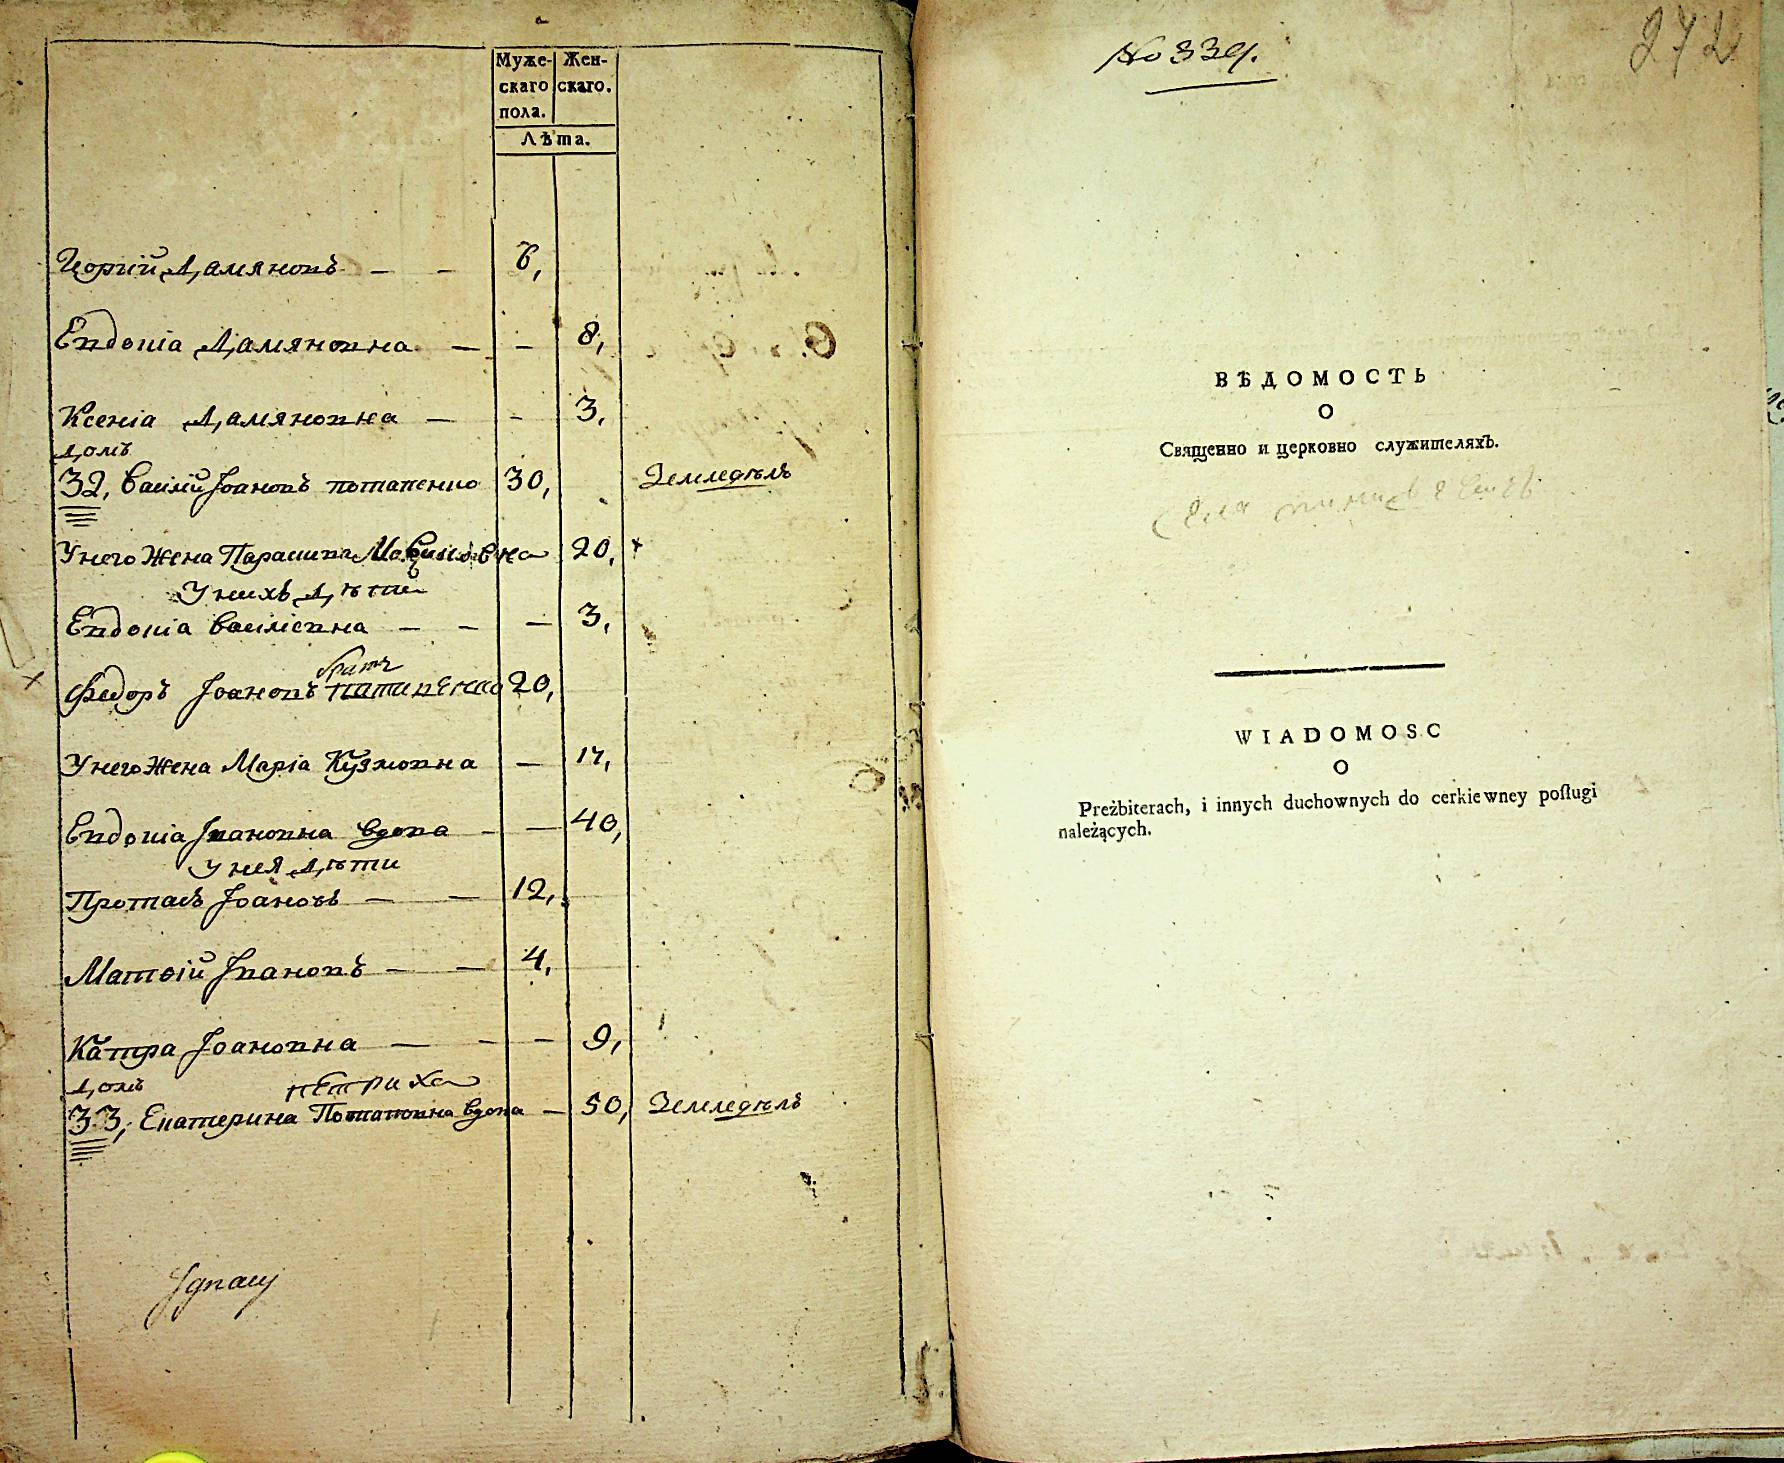 Муже- Жен-
скаго скаго.
пола.
Лѣта.
Юрий Дамяновъ — — 6,
Евдокіа Дамяновна — — 8,
Ксеніа Дамяновна — — 3,
домъ
32, Василій Іоановъ потапенко 30, Земледѣлъ
У него Жена Параскива 20, +
У нихъ дѣти
Евдокіа Василіевна — — — 3,
братъ
+ Федоръ Іоановъ потапенко 20,
У него Жена Маріа Кузмовна — 17,
Евдокіа Івановна вдова — — 40,
У нея дѣти
Протасъ Іоановъ — — 12,
Матѳій Івановъ — — 4,
Катра Іоановна — — — 9,
домъ петриха
33, Екатерина Потаповна вдова — 50, Земледѣлъ
Ignacy
No 339.
272
ВѢДОМОСТЬ
О
Священно и церковно служителяхъ.
WIADOMOSC
O
Preżbiterach, i innych duchownych do cerkiewney poſlugi
należących.